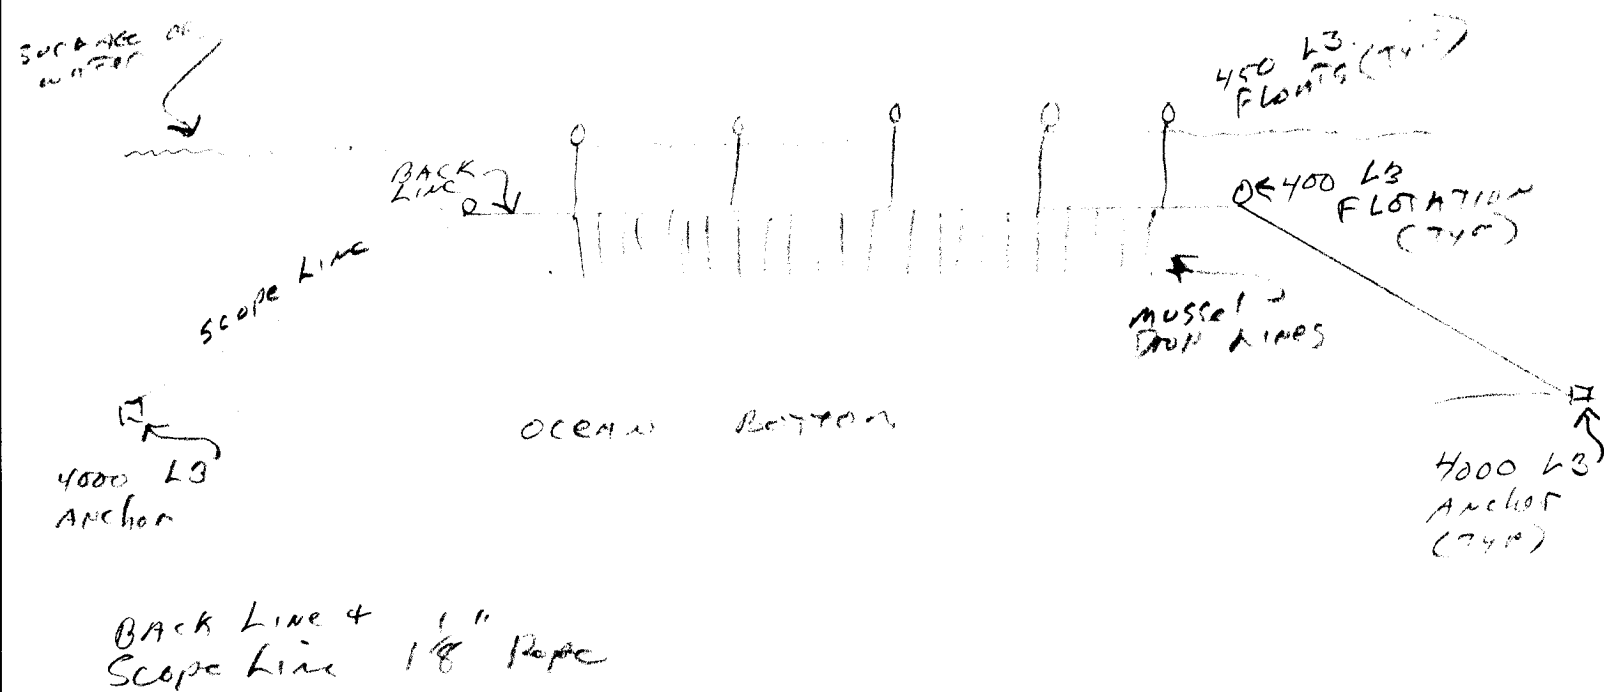 SURFACE OF
WATER
450 LB
FLOATS (TYP)
BACK
LINE
400 LB
FLOTATION
(TYP)
SCOPE LINE
MUSSEL
DROP LINES
OCEAN BOTTOM
4000 LB
ANCHOR
4000 LB
ANCHOR
(TYP)
BACK LINE &
SCOPE LINE 1 1/8" ROPE